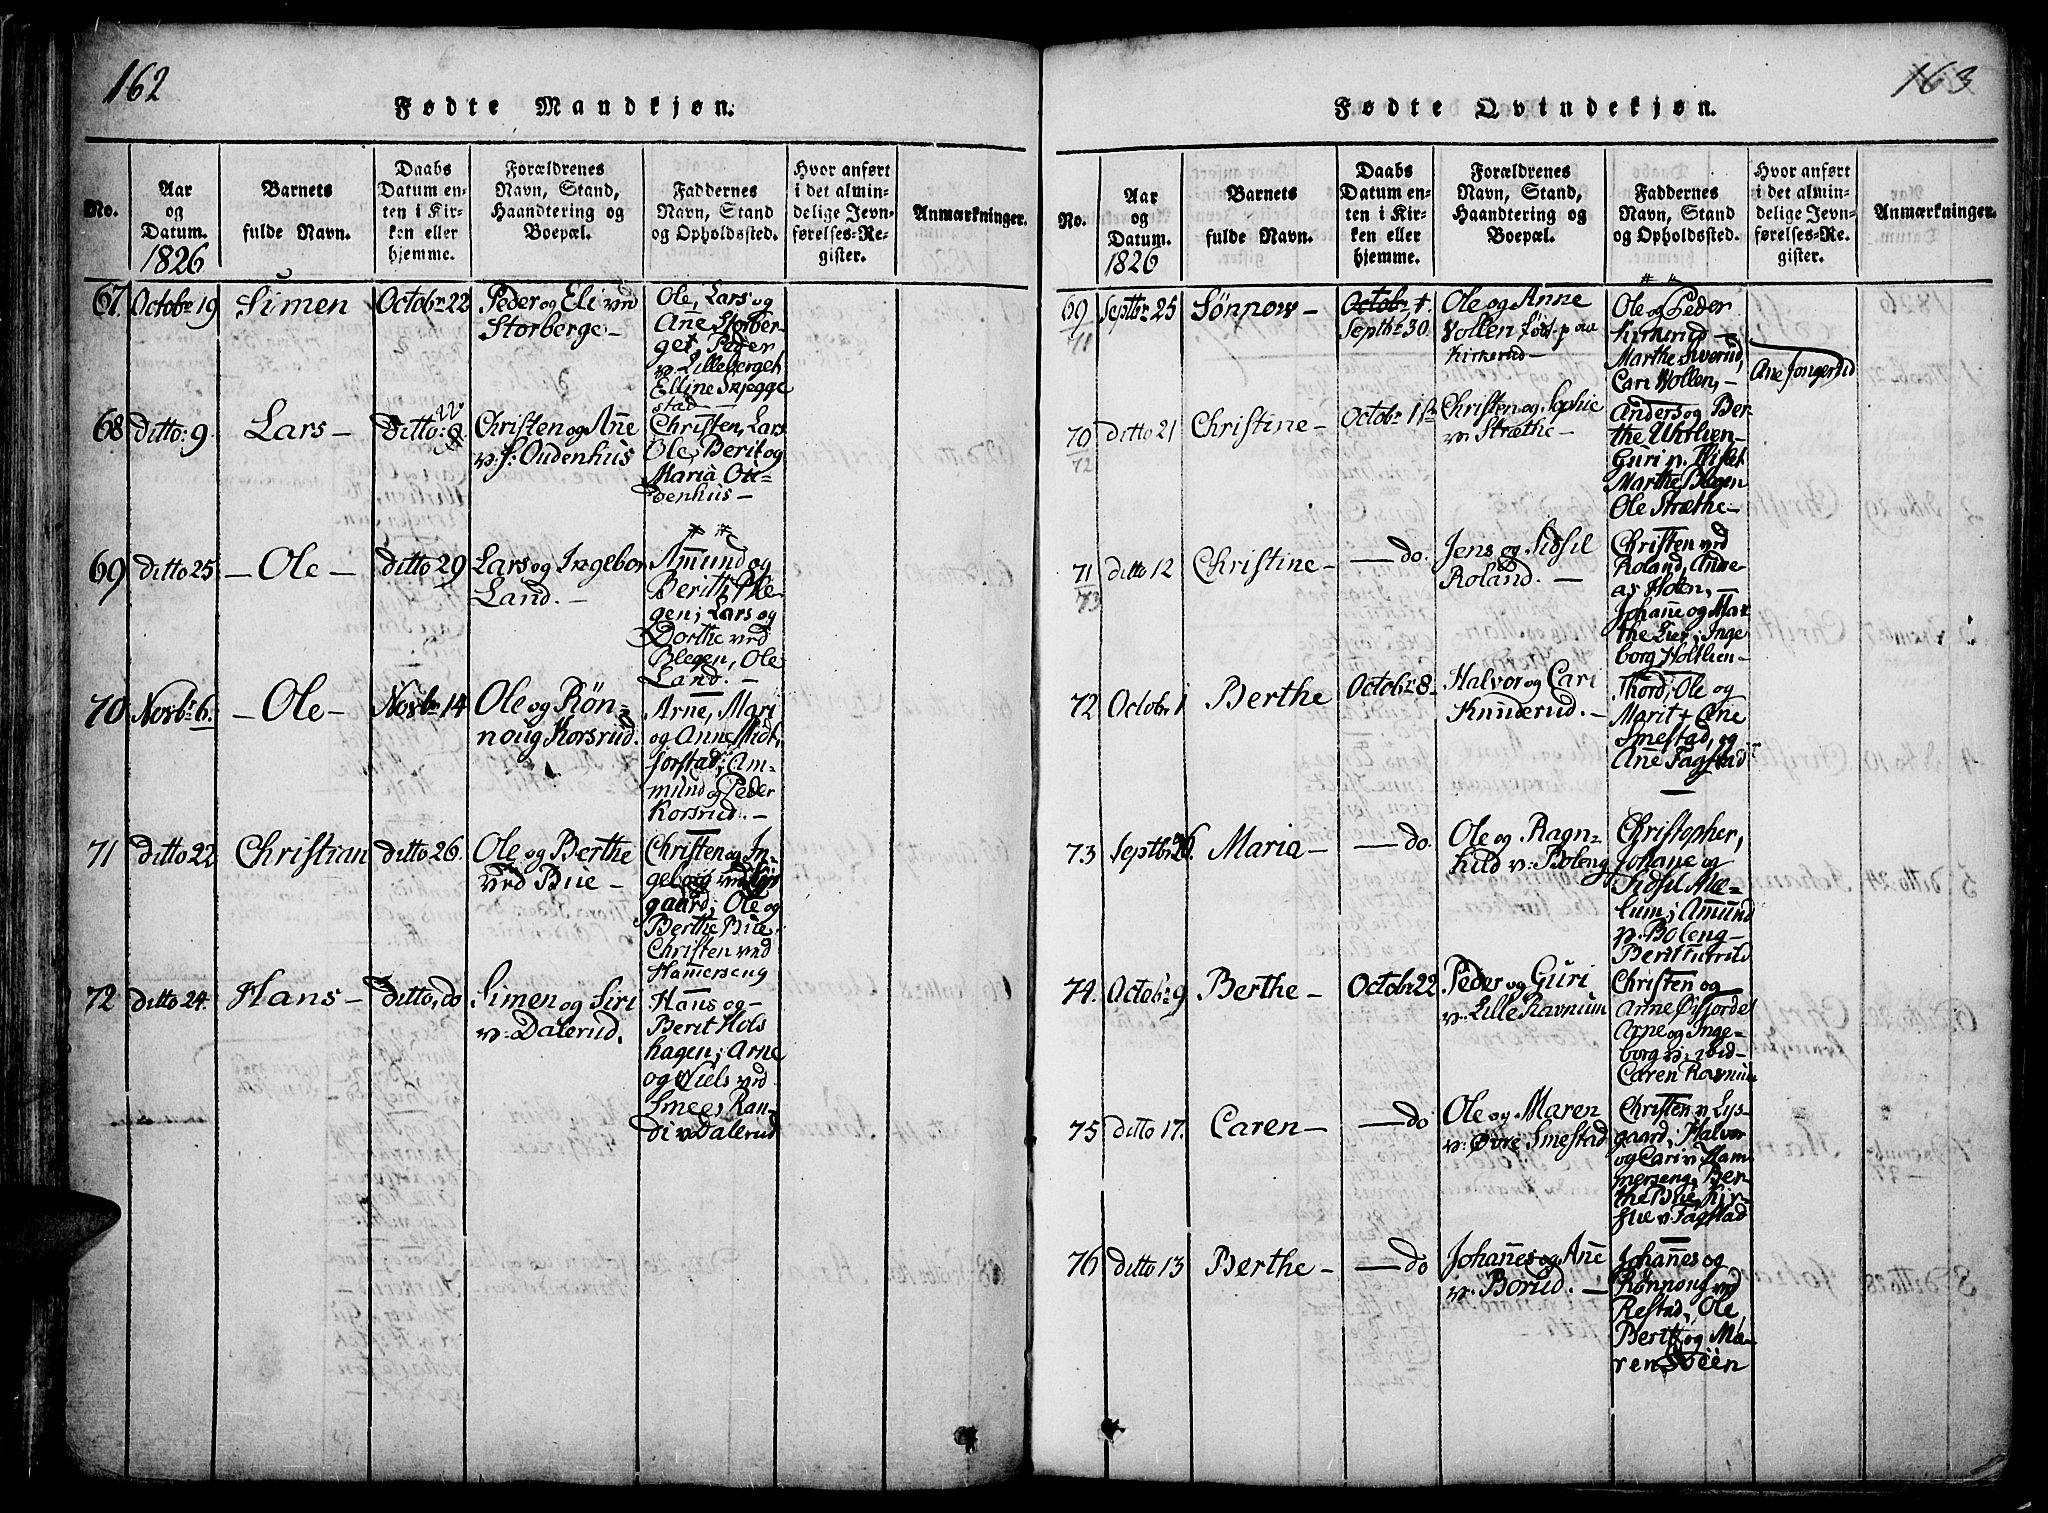 162
Fødte Mandkjøn.
No.
Aar
og
Datum.
1826
Barnets
fulde Navn.
Daabs
Datum en-
ten i Kir-
ken eller
hjemme.
Forældrenes
Navn, Stand,
Haandtering og
Boepæl.
Faddernes
Navn, Stand
og Opholdssted.
Hvor anført
i det almin-
delige Jevn-
førelses-Re-
gister.
Anmærkninger.
67.
Octobr 19
Simen
Octobr 22
Peder og Eli vid
Storberge –
Ole, Lars og
Añe Storber-
get, Peder
v. Lilleberget
Elline Skjegge
stad –
68
ditto: 9.
Lars –
Ditto:
22
Christen og Añe
v. S: Oudenhus
Christen, Lars
Ole, Berit og
Maria Ou-
denhus –
69
ditto 25
– Ole –
ditto 29
Lars og Ingebor
Land. –
Am̄und og
Berith Ble-
gen; Lars og
Dorthe vid
Blegen, Ole
Land. –
70
Novbr 6.
– Ole –
Novbr 14
Ole og Rön-
noug Korsrud.
Arne, Mari
og Anne Midt-
jorstad; Am-
mund og Peder
Korsrud. –
71
ditto 22
Christian
ditto 26.
Ole og Berthe
vid Bue –
Christen og In-
geborg vid Lys
gaard; Ole og
Berthe Bue;
Christen vid
Ham̄erseng
72
ditto 24.
Hans –
Ditto, do
Simen og Siri
v. Dalerud.
Hans og –
Berit Hols
hagen; Arne
og Niels vid
Smee, Ran-
di v. Dalerud
163
Fødte Qvindekjøn.
No.
Aar
og
Datum.
1826
Barnets
fulde Navn.
Daabs
Datum en-
ten i Kir-
ken eller
hjemme.
Forældrenes
Navn, Stand,
Haandtering og
Boepæl.
Faddernes
Navn, Stand
og Opholdssted.
Hvor anført
i det almin-
delige Jevn-
førelses-Re-
gister.
Anmærkninger.
69
71
Septbr 25
Sönnow –
Octobr 1.
Septbr 30.
Ole og Anne
Vollen födt paa
Kirkerud –
Ole og Peder
Kirkerud –
Marthe Sverud,
Cari Vollen, –
Ane Jongerud
70
72
ditto 21
Christine –
Octobr 1st
Christen og Sophie
v. Stræthe –
Anders og Ber-
the Uhrlien –
Guri p.
Marthe Blegen
Ole Stræthe –
71
73
ditto 12
Christine –
– do.
Jens og Sidsil
Roland. –
Christen vid
Roland, Andre-
as Holen, –
Johañe og Mar
the Lier, Inge
borg Holtlien –
72
Octobr 1
Berthe
Octobr 8 –
Halvor og Cari
Knuderud. –
Thord, Ole og
Marit + Ane
Smestad, og
Ane Fagstad
–
73
Septbr 26.
Maria –
– do.
Ole og Ragn-
hild v. Boleng
Christopher,
Johañe og
Sidsil Alæ-
lum; Am̄und
p. Boleng –
Berit
74.
Octobr 9
Berthe –
Octobr 22
Peder og Guri
v. Lille Ravnum
Christen og
Arne Öisjordet
Arne og Inge-
borg v: ibid –
Caren Ravnum
75
ditto 17.
Caren –
– do
Ole og Maren
v. Øvre Smestad
Christen v. Lys-
gaard; Halvor
og Cari v. Ham
merseng, Ber-
the Bue, Kir-
stie v. Fagstad
76
ditto 13
Berthe –
– do
Johañes og Añe
v. Borud. –
Johañes og
Rönnoug vid
Restad, Ole
Berit og Ma-
ren Sveen